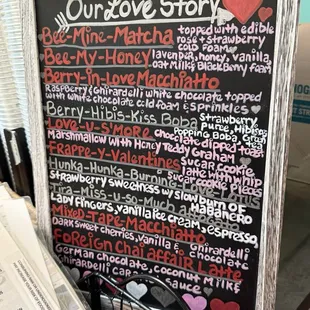 Our Love Story
Bee-Mine-Matcha topped with edible
rose + strawberry
cold foam
Bee-My-Honey lavender, honey, vanilla,
oat milk, Blackberry foam
Berry-in-Love Macchiatto
Raspberry & Ghirardelli white chocolate topped
with white chocolate cold foam & sprinkles
Berry-Hibis-Kiss Boba Strawberry
Puree, Hibiscus
Popping Boba
Love-U-S'more chocolate dipped
Marshmallow with Honey Teddy Graham
Frappe-y-Valentines Sugar cookie
latte with whip
sugar cookie
Hunka-Hunka-Burning
Strawberry sweetness w/ slow burn of
Habanero
Tira-Miss-U-so-Much
Lady fingers, vanilla ice cream, espresso,
Mixed-Tape-Macchiatto
Dark sweet cherries, vanilla & Ghirardelli
chocolate
Foreign Chai affair Latte
German chocolate, coconut milk
Ghirardelli caramel sauce